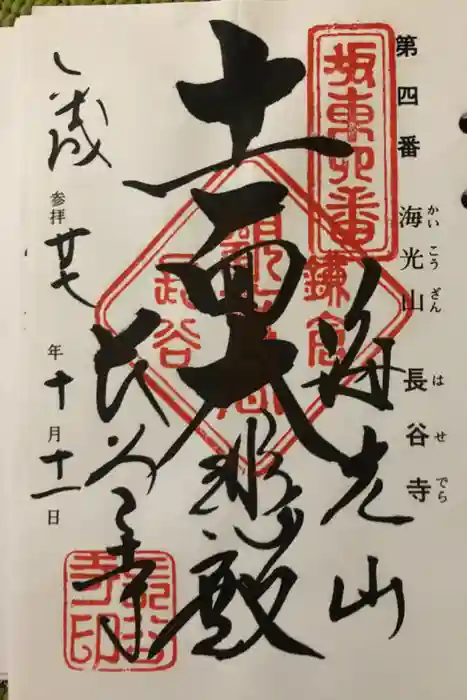 第四番 海光山 長谷寺
かいこうざん はせでら
坂東四番
海光山
鎌倉
十一面大悲殿
長谷
長谷寺
平成
参拝 廿七年十月十一日